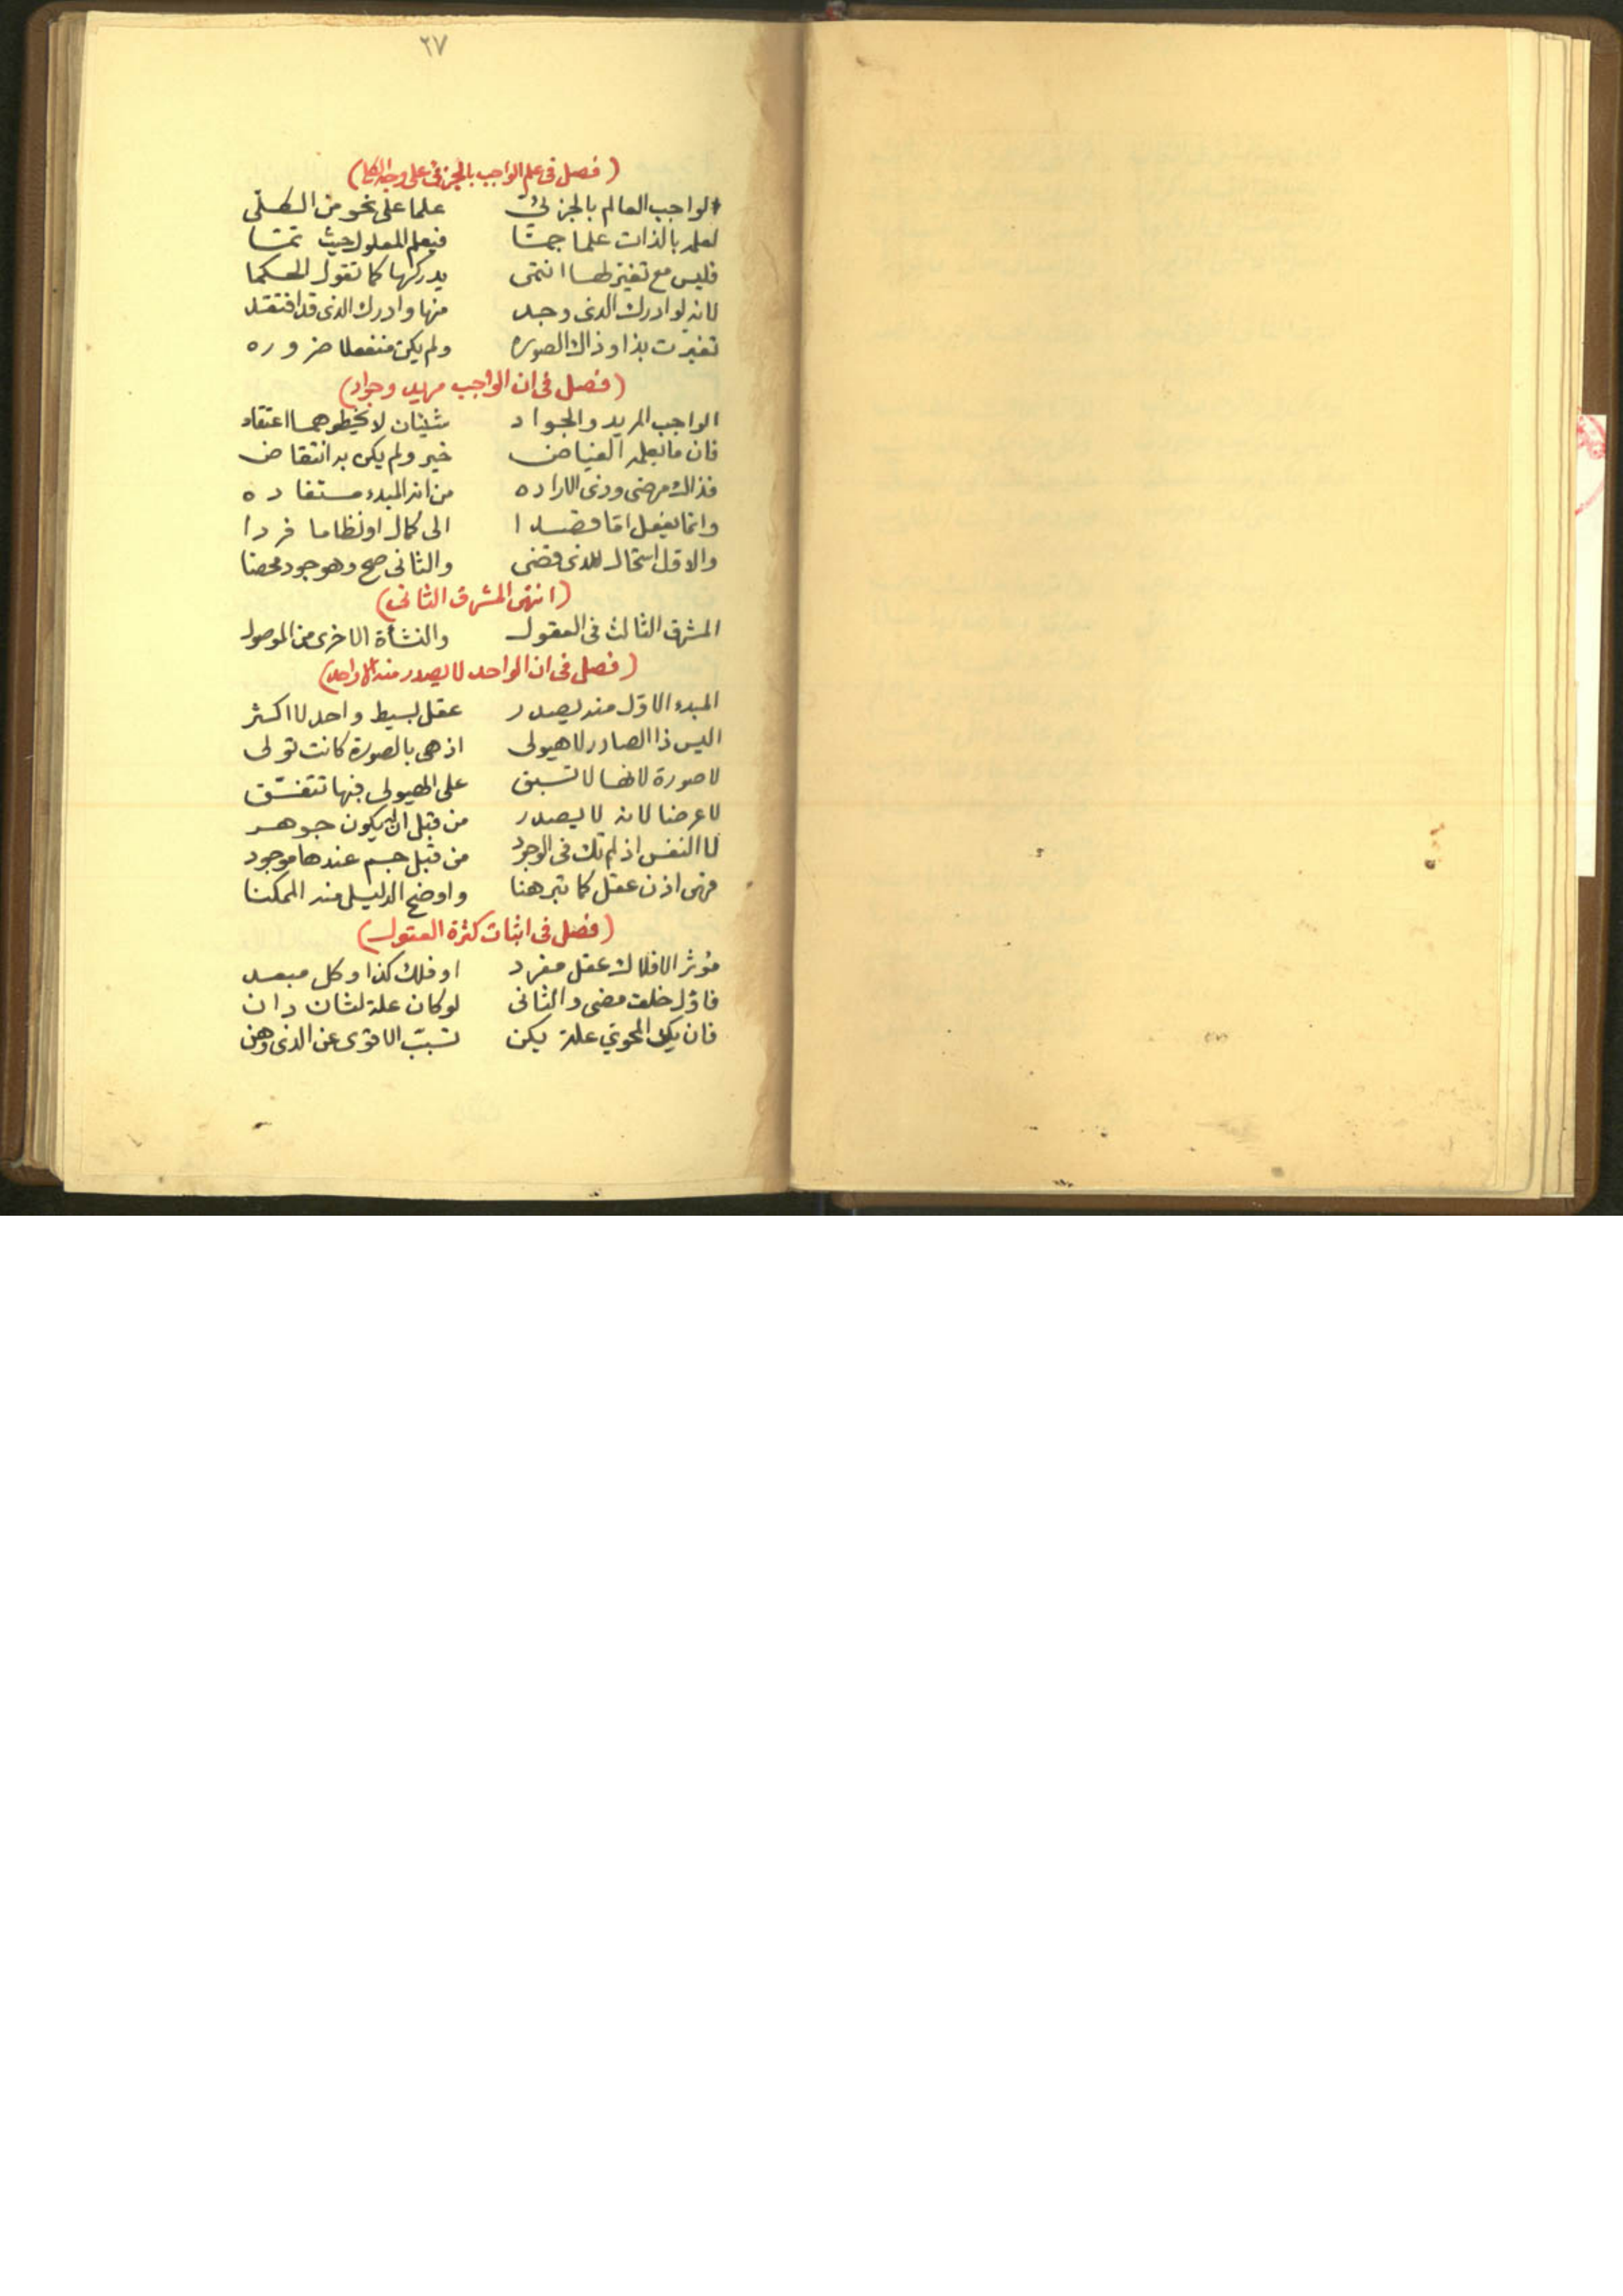 ٢٧
(فصل فى علم الواجب بالجزئى على وجه الكلى)
الواجب العالم بالجزئى علما على نحو من الكلى
لعلمه بالذات علما جمّا فيعلم المعلول حيث تمّا
فليس مع تغير لها انتمى يدركها كما تقول الحكما
لانه لو ادرك الذى وجد منها وادرك الذى قد افتقد
تغيرت بذا وذاك الصوره ولم يكن منفعلا ضروره
(فصل فى ان الواجب مريد وجواد)
الواجب المريد والجواد شيئان لا يخطوهما اعتقاد
فان ما يعلمه الفياض خير ولم يكن به انتقاض
فذاك مرضى وذى الاراده من انه المبدء مستفاده
وانما يفعل اما قصدا الى كمال او نظاما فردا
والاول استحال للذى قضى والثانى صح وهو جود محضا
(انتهى المشرق الثانى)
المشرق الثالث فى العقول والنشأة الاخرى من الموصول
(فصل فى ان الواحد لا يصدر منه الا واحد)
المبدء الاول منه يصدر عقل بسيط واحد لا اكثر
اليس ذا الصادر لا هيولى اذ هى بالصورة كانت تولى
لا صورة لانها لا تسبق على الهيولى فبها تتفسّق
لا عرضا لانه لا يصدر من قبل ان يكون جوهر
لا النفس اذ لم تك فى الوجود من قبل جسم عندها موجود
فهى اذن عقل كما تبرهنا واوضح الدليل منه الممكنا
(فصل فى اثبات كثرة العقول)
مؤثر الافلاك عقل مفرد او فلك كذا وكل مبعد
فاول خلف مضى والثانى لو كان علة لثان دان
فان يك المحوي علة يكن تسبّب الاقوى عن الذى وهن